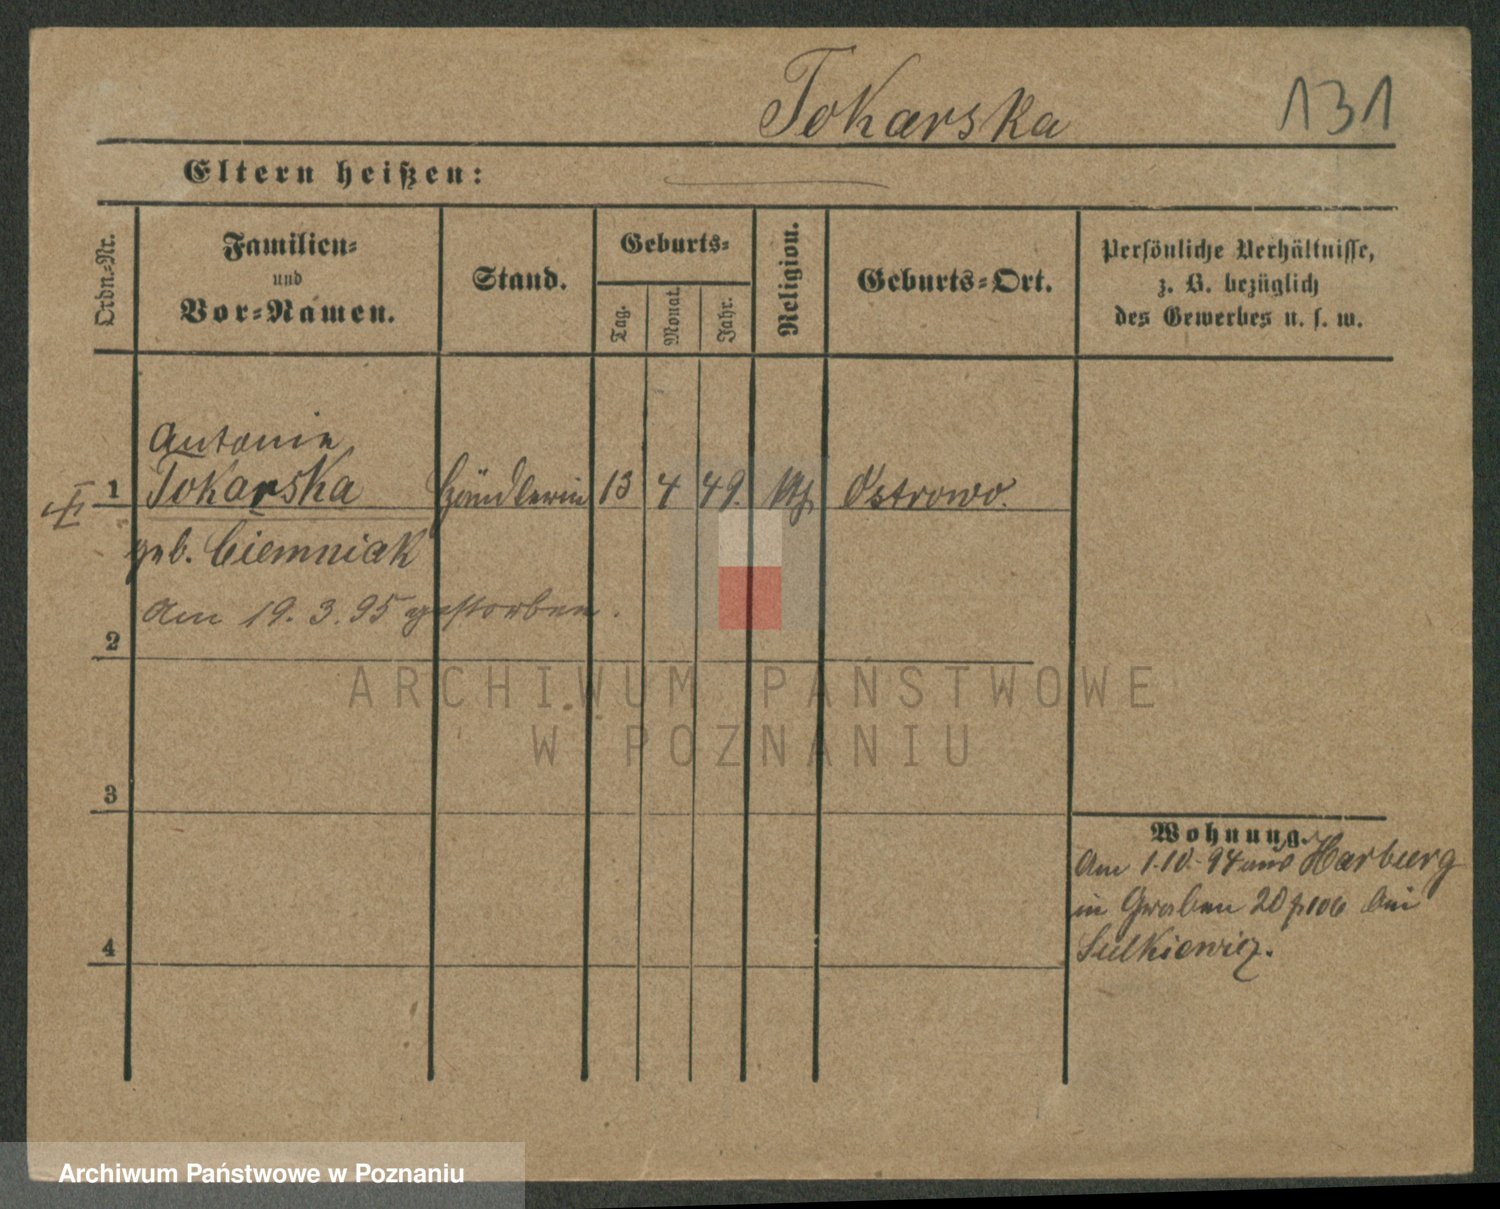 Tokarska 131
Eltern heißen:
Ordn.-Nr.
Familien-
und
Vor-Namen.
Stand.
Geburts-
Tag.
Monat.
Jahr.
Religion.
Geburts-Ort.
Persönliche Verhältnisse,
z. B. bezüglich
des Gewerbes u. s. w.
Antonie
1 Tokarska Händlerin 13 4 49. kth Ostrowo.
geb. Ciemniak
Am 19. 3. 95 gestorben.
2
ARCHIWUM PAŃSTWOWE
W POZNANIU
3
Wohnung.
Am 1.10.94 aus Harburg
in Graben 20 bei
Sulkiewicz.
4
Archiwum Państwowe w Poznaniu